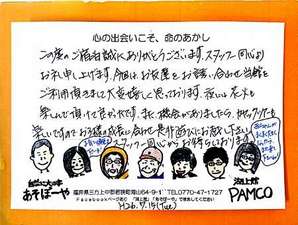 心の出会いこそ、命のあかし
この度のご宿泊誠にありがとうございます。スタッフ一同心より
お礼申し上げます。今回はお友達をお誘い合わせ当館を
ご利用頂きまして大変嬉しく思っております。夜には花火も
楽しんで頂けて良かったです。また機会がありましたら、
楽しいですのでお子様の成長に合せ是非遊びにお越し下さい
スタッフ一同心からお待ちしております
あそぼーや
湖上館
PAMCO
福井県三方上中郡若狭町海山64-9-1 TEL0770-47-1727
Facebookページあり 「湖上館」「あそぼーや」で検索してください
H26.7.15(Tue)